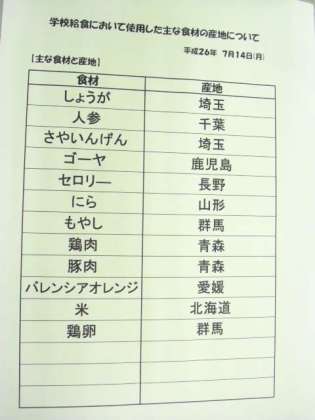 学校給食において使用した主な食材の産地について
平成26年 7月14日(月)
【主な食材と産地】
食材 産地
しょうが 埼玉
人参 千葉
さやいんげん 埼玉
ゴーヤ 鹿児島
セロリー 長野
にら 山形
もやし 群馬
鶏肉 青森
豚肉 青森
バレンシアオレンジ 愛媛
米 北海道
鶏卵 群馬